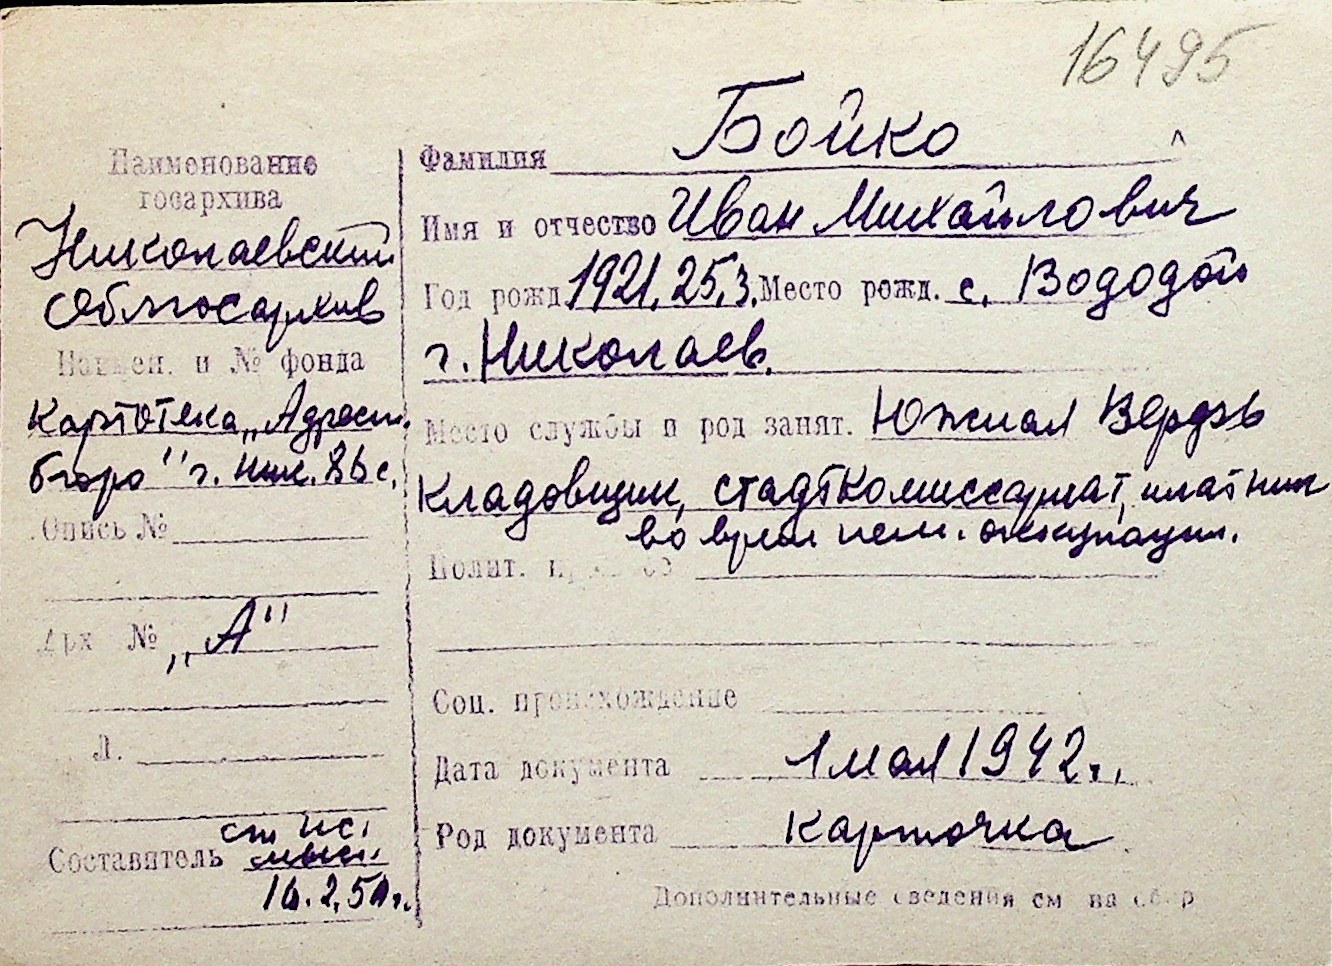 16495
Наименование
госархива
Николаевский
Облгосархив
Наимен. и № фонда
Картотека „Адресн.
бюро" г. Ник.
Опись №
Арх №
„А"
Л.
Составитель
ст
16.2.50г.
Фамилия Бойко
Имя и отчество Иван Михайлович
Год рожд. 1921. 25.3. Место рожд. с. Вододой
г. Николаев.
Место службы и род занят. Южная Верфь
Кладовщик, стадткомиссариат,
во время нем. оккупации.
Полит.
Соц. происхождение
Дата документа 1 мая 1942г.
Род документа карточка
Дополнительные сведения см на обор